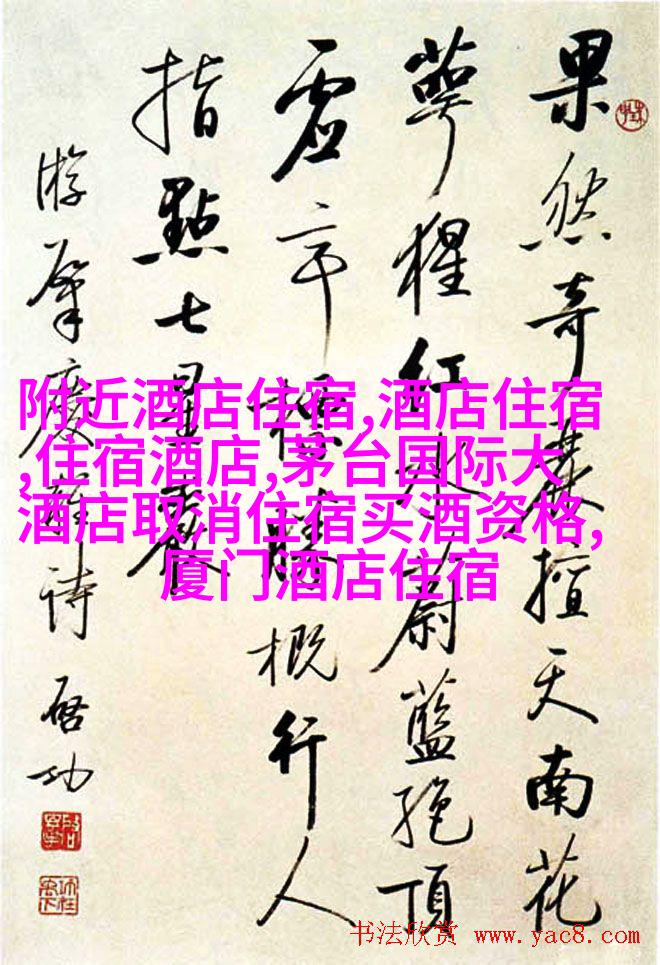 果然奇麗擅天南花
萼猩红水蔚藍絶頂
虚亭勝概行人
指點七星巖
游肇慶诗 啓功
附近酒店住宿,酒店住宿
,住宿酒店,茅台国际大
酒店取消住宿买酒资格,
厦门酒店住宿
书法欣赏 www.yac8.com